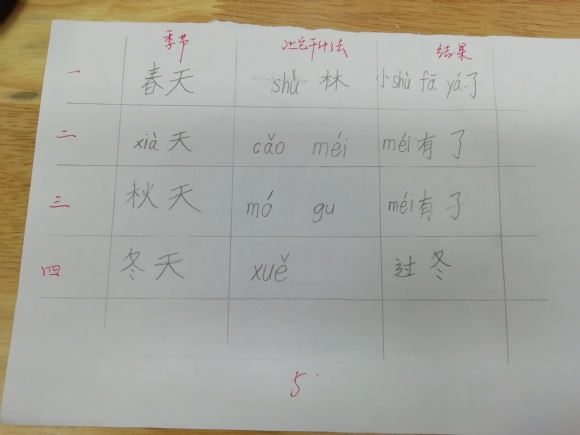 季节 结果
一 春天 shù 林 小shù fā yá了
二 xià天 cǎo méi méi有了
三 秋天 mó gu méi有了
四 冬天 xuě 过冬
5